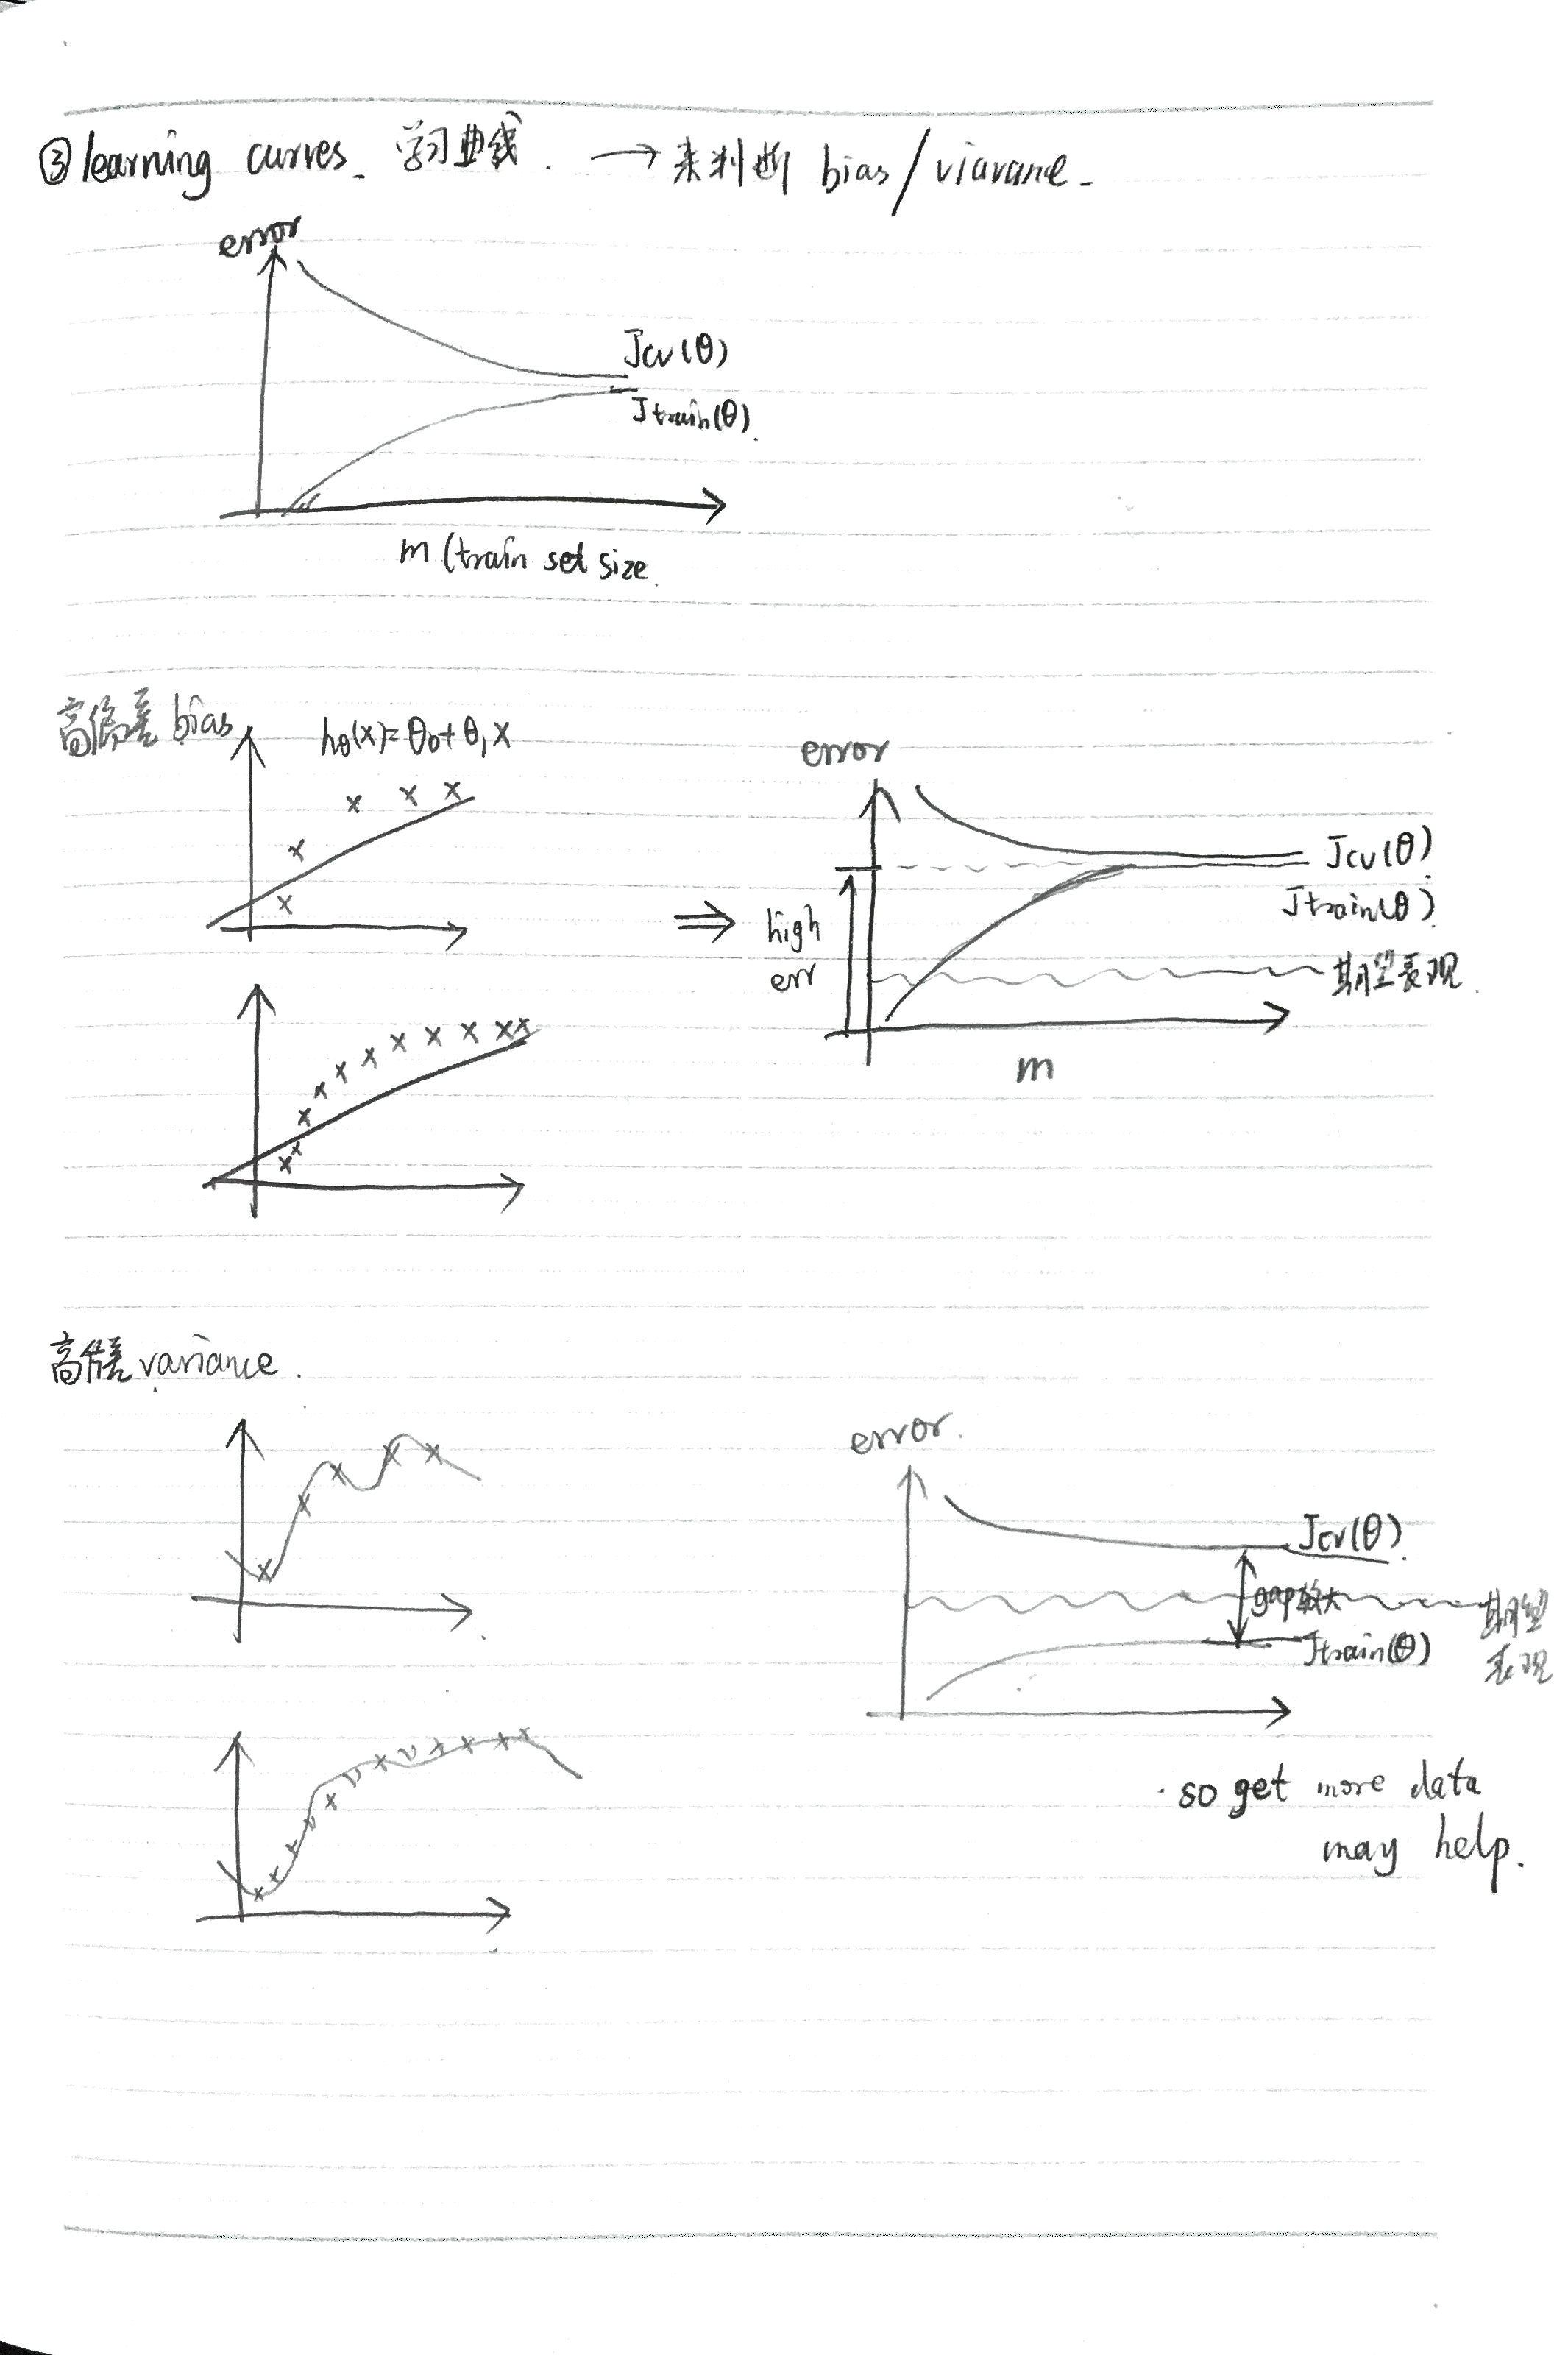 ③ learning curves. 学习曲线. → 来判断 bias/viavance.
error
Jcv(θ)
Jtrain(θ).
m (train set size.
高偏差 bias
hθ(x)=θ0+θ1x
error
Jcv(θ)
Jtrain(θ).
high
err
期望表现
m
高方差 variance.
error.
Jcv(θ).
gap较大
期望
表现
Jtrain(θ)
· so get more data
may help.